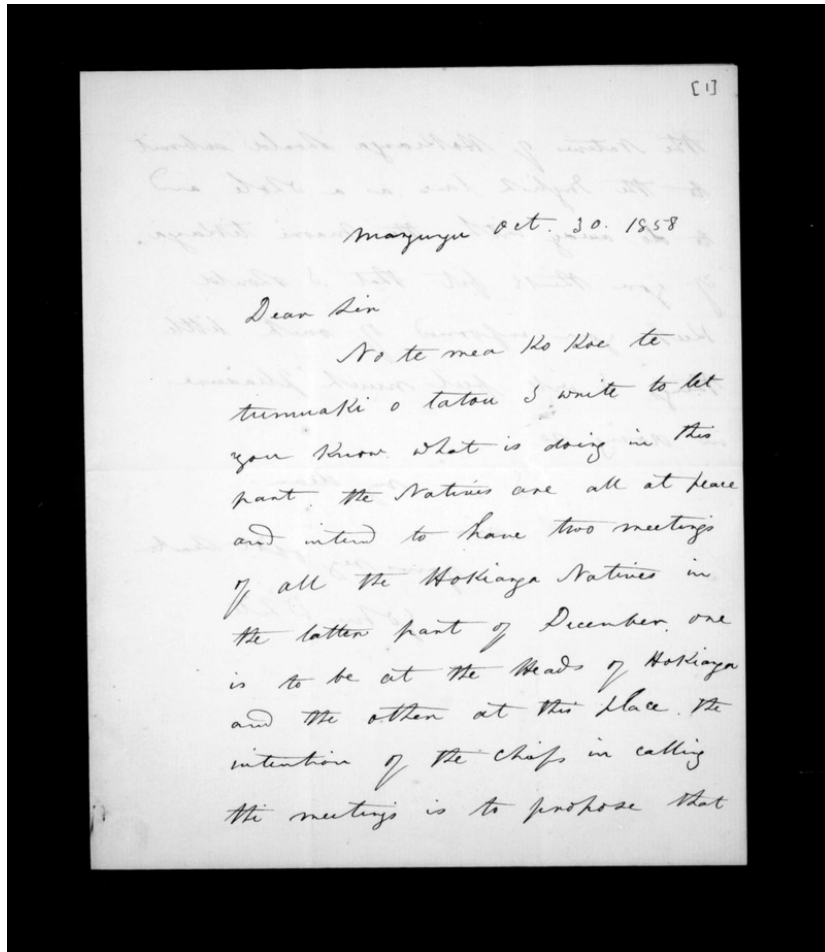 [1]
Mangungu Oct. 30. 1858
Dear Sir
No te mea Ko Koe te
tumuaki o tatou I write to let
you know what is doing in this
part. the Natives are all at peace
and intend to have two meetings
of all the Hokianga Natives in
the latter part of December. one
is to be at the Heads of Hokianga
and the other at this place. the
intention of the chiefs in calling
the meetings is to propose that